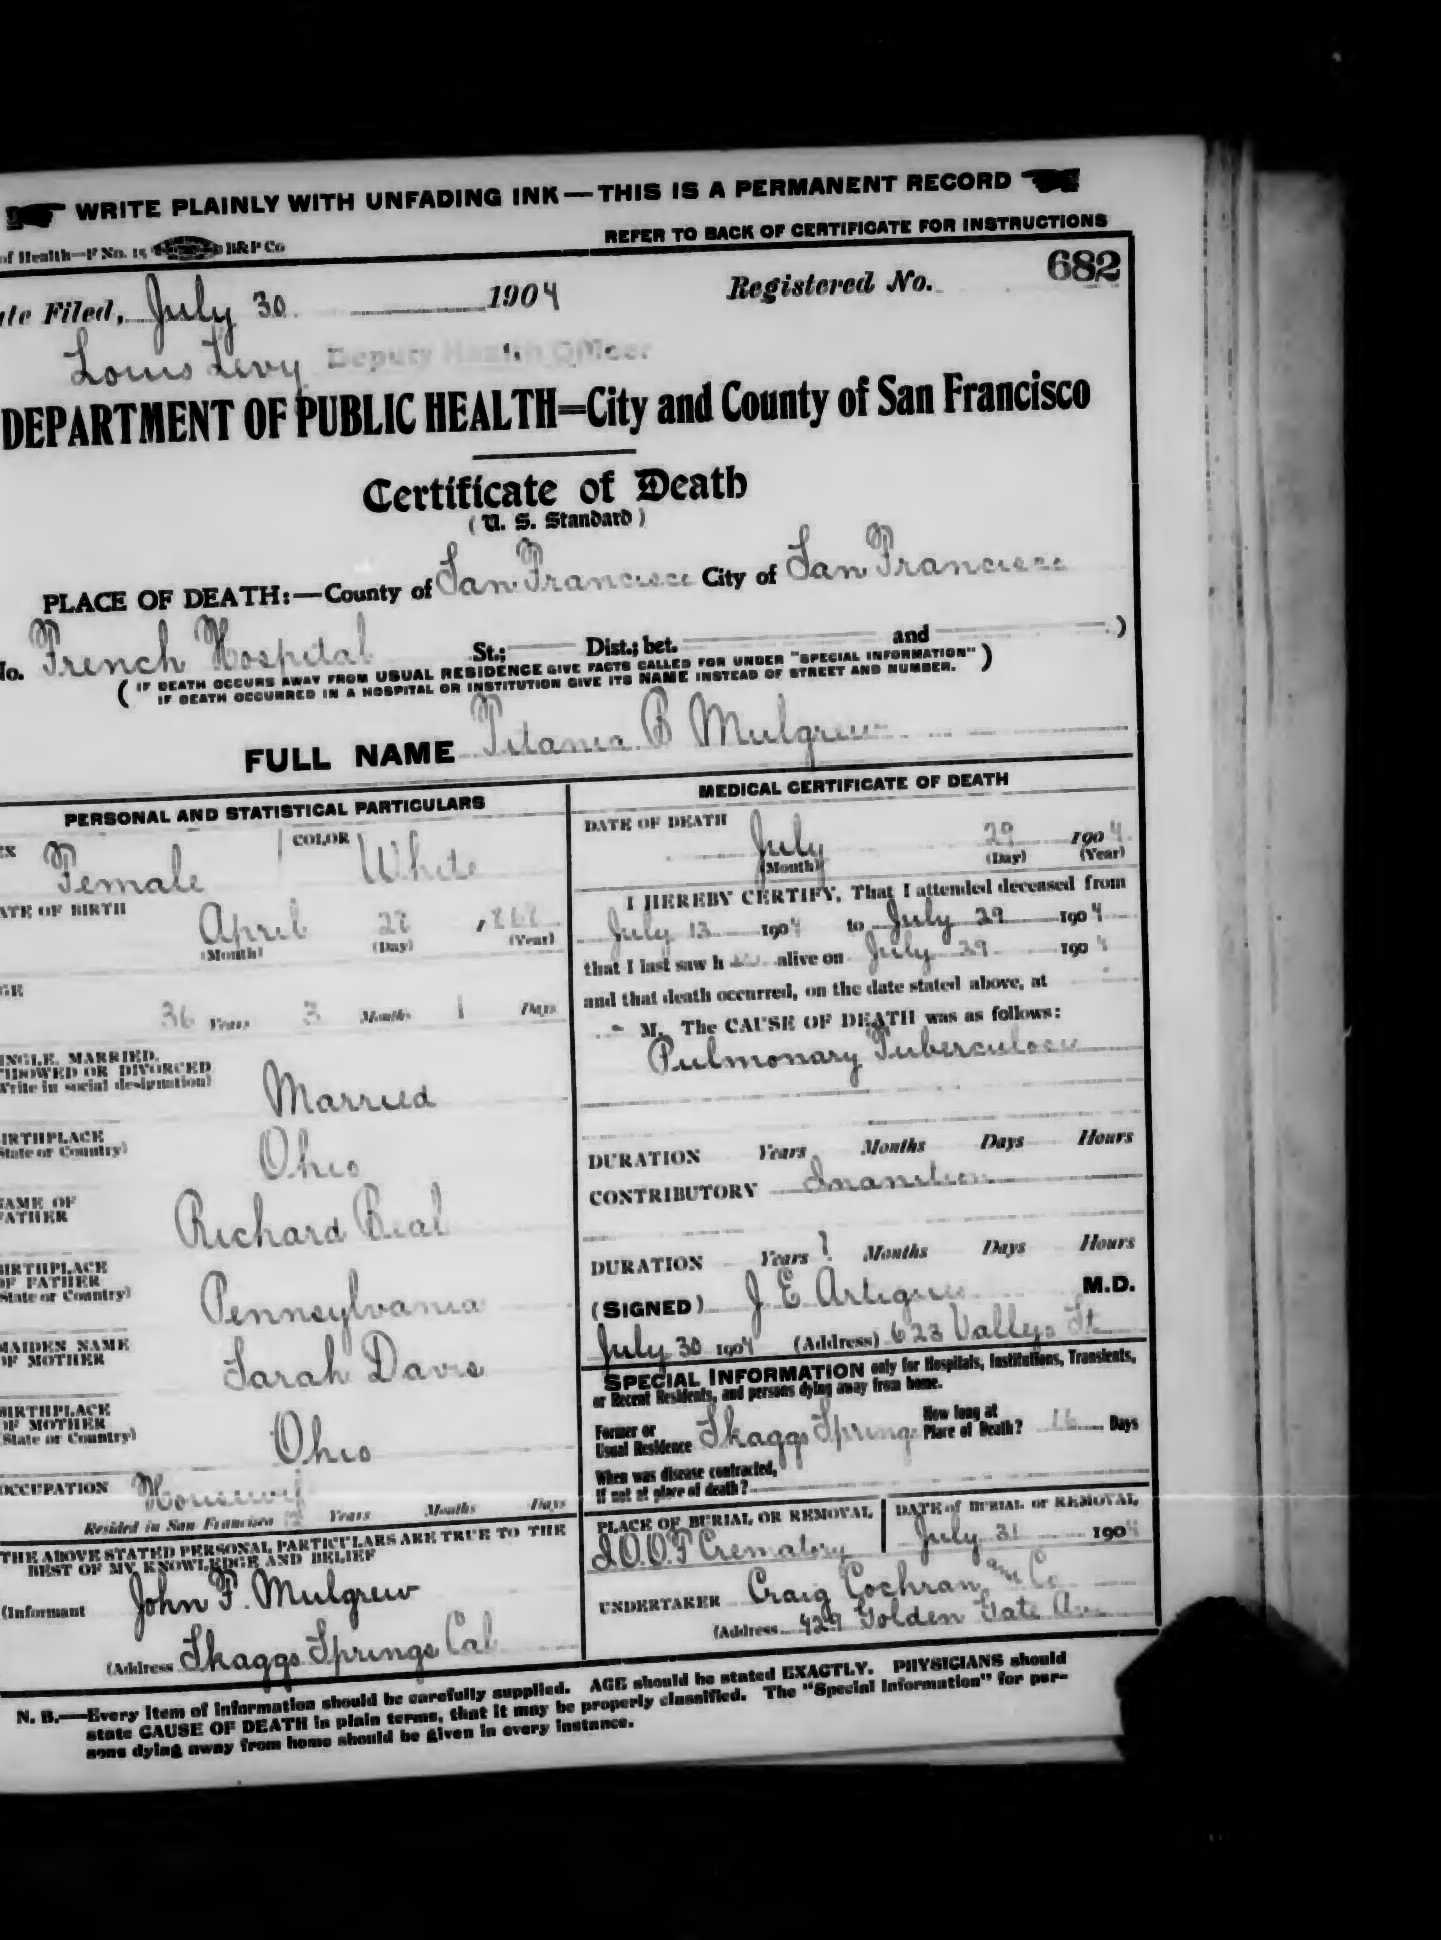 WRITE PLAINLY WITH UNFADING INK—THIS IS A PERMANENT RECORD
of Health—F No. 15 B&P Co
REFER TO BACK OF CERTIFICATE FOR INSTRUCTIONS
ate Filed, July 30 1904 Registered No. 682
Louis Levy Deputy Health Officer
DEPARTMENT OF PUBLIC HEALTH=City and County of San Francisco
Certificate of Death
(U. S. Standard)
PLACE OF DEATH:—County of San Francisco City of San Francisco
No. French Hospital St.; Dist.; bet. and )
( IF DEATH OCCURS AWAY FROM USUAL RESIDENCE GIVE FACTS CALLED FOR UNDER "SPECIAL INFORMATION" )
IF DEATH OCCURRED IN A HOSPITAL OR INSTITUTION GIVE ITS NAME INSTEAD OF STREET AND NUMBER.
FULL NAME Titania B Mulgrew
PERSONAL AND STATISTICAL PARTICULARS
EX Female COLOR White
ATE OF BIRTH
April 28 , 1868
(Month) (Day) (Year)
GE
36 Years 3 Months 1 Days
INGLE, MARRIED,
IDOWED OR DIVORCED
Write in social designation)
Married
IRTHPLACE
State or Country)
Ohio
NAME OF
FATHER
Richard Beal
BIRTHPLACE
OF FATHER
State or Country)
Pennsylvania
MAIDEN NAME
OF MOTHER
Sarah Davis
BIRTHPLACE
OF MOTHER
(State or Country)
Ohio
OCCUPATION Housewife
Resided in San Francisco Years Months Days
THE ABOVE STATED PERSONAL PARTICULARS ARE TRUE TO THE
BEST OF MY KNOWLEDGE AND BELIEF
(Informant John F. Mulgrew
(Address Skaggs Springs Cal
MEDICAL CERTIFICATE OF DEATH
DATE OF DEATH
July 29 1904
(Month) (Day) (Year)
I HEREBY CERTIFY, That I attended deceased from
July 13 1904 to July 29 1904
that I last saw h alive on July 29 1904
and that death occurred, on the date stated above, at
M. The CAUSE OF DEATH was as follows:
Pulmonary Tuberculosis
DURATION Years Months Days Hours
CONTRIBUTORY Inanition
DURATION Years 1 Months Days Hours
(SIGNED) J E Artigues M.D.
July 30 1904 (Address) 623 Vallejo St
SPECIAL INFORMATION only for Hospitals, Institutions, Transients,
or Recent Residents, and persons dying away from home.
Former or
Usual Residence Skaggs Springs
How long at
Place of Death? 16 Days
When was disease contracted,
If not at place of death?
PLACE OF BURIAL OR REMOVAL
I.O.O.F Crematory
DATE of BURIAL or REMOVAL
July 31 1904
UNDERTAKER Craig Cochran and Co
(Address 429 Golden Gate Av
N. B.—Every item of information should be carefully supplied. AGE should be stated EXACTLY. PHYSICIANS should
state CAUSE OF DEATH in plain terms, that it may be properly classified. The "Special Information" for per-
sons dying away from home should be given in every instance.